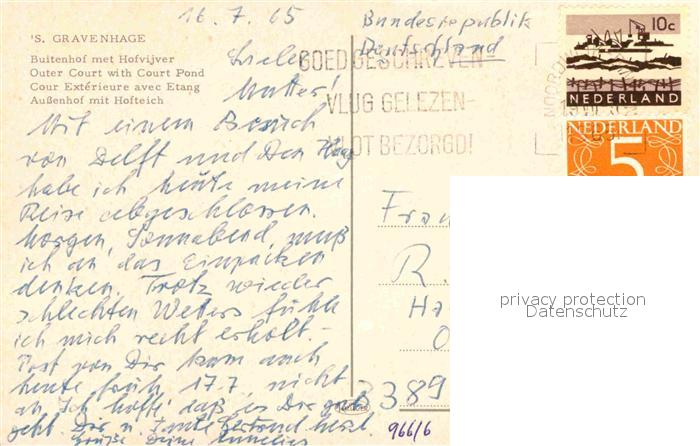 16.7.65
'S. GRAVENHAGE
Buitenhof met Hofvijver
Outer Court with Court Pond
Cour Extérieure avec Etang
Außenhof mit Hofteich
Liebe
Mutter!
Mit einem Besuch
von Delft und Den Haag
habe ich heute meine
Reise abgeschlossen.
Morgen, Sonnabend, muß
ich an das Einpacken
denken. Trotz wieder
schlechten Weters fühle
ich mich recht erholt. -
Post von Dir kam auch
heute früh 17.7. nicht
an. Ich hoffe daß es Dir gut
geht. Dir u. Tante Gertrud herzl.
Grüße Deine Annelies
Bundesrepublik
Deutschland
GOED GESCHREVEN-
VLUG GELEZEN-
VLOT BEZORGD!
10c
NEDERLAND
NEDERLAND
5
Frau
R.
Ha
O
3389
966/6
privacy protection
Datenschutz